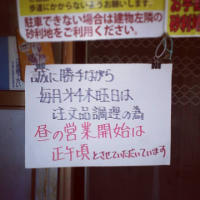 歩道にかからないようお願いします。
駐車できない場合は建物左隣の
砂利地をご利用ください。
誠に勝手ながら
毎月オ4木曜日は
注文品調理の為
昼の営業開始は
正午頃とさせていただいています